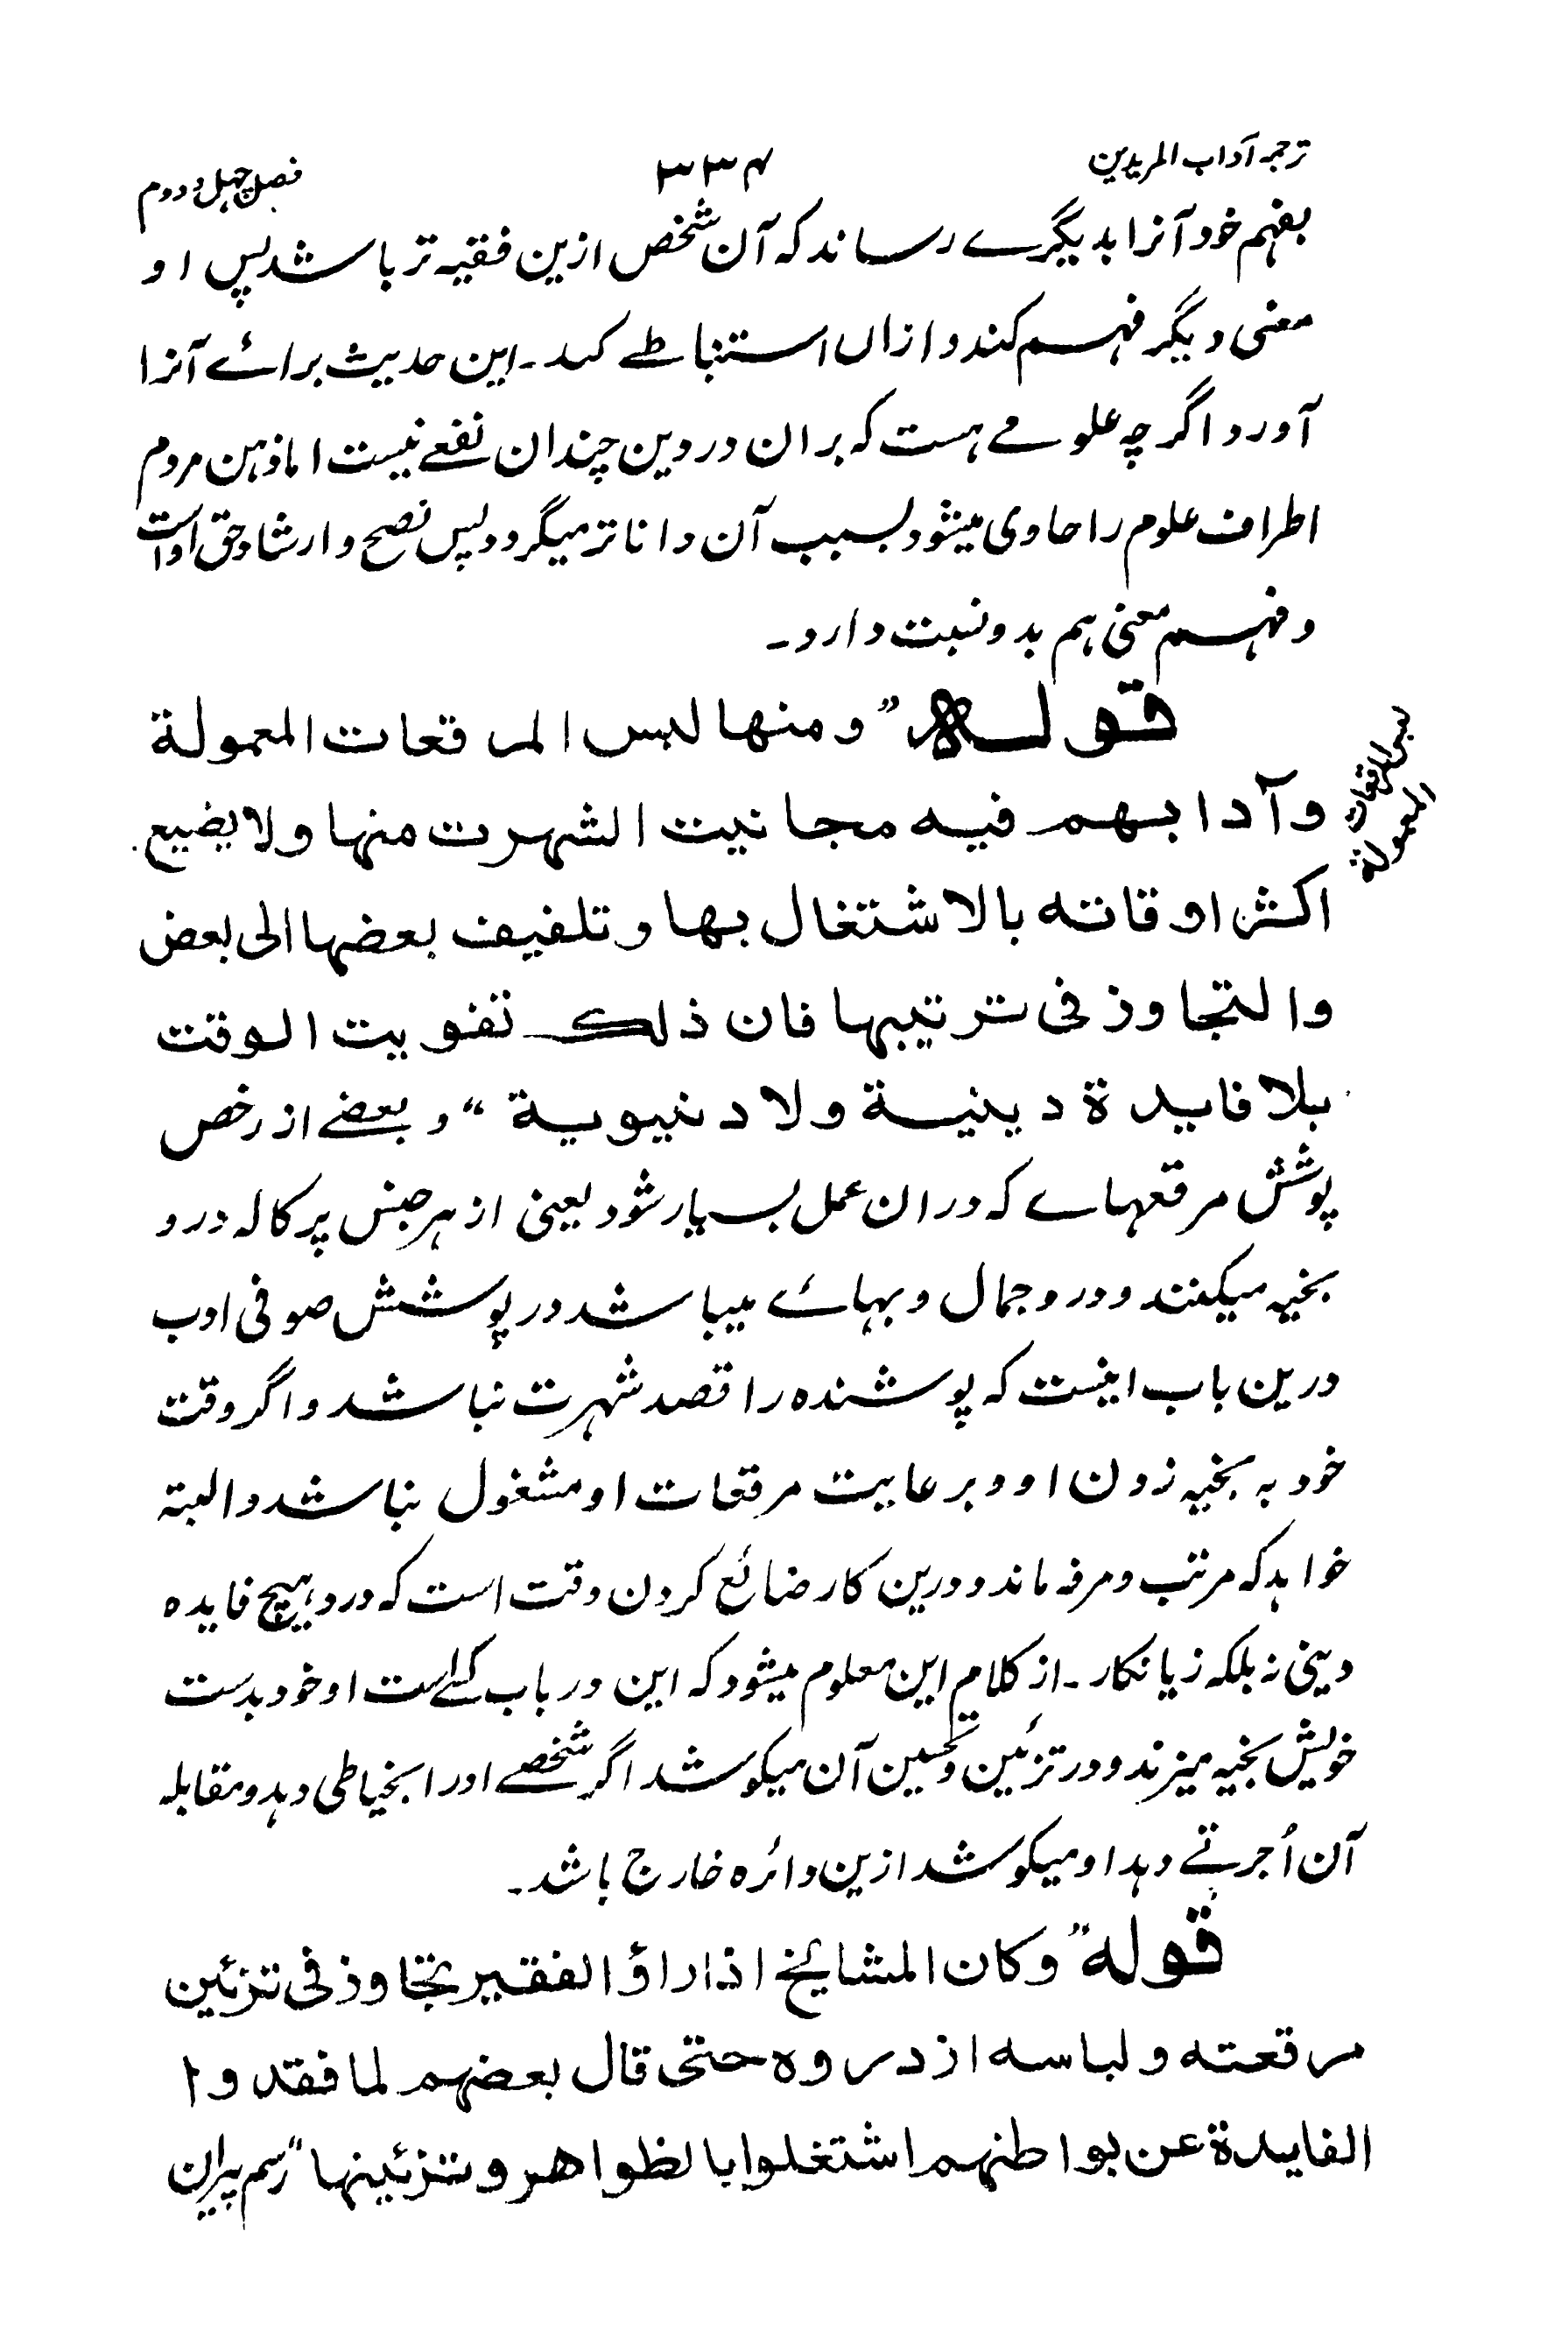 ترجمہ آداب المریدین
۳۳۴
فصل چہل و دوم
بفہم خود آنرا بدیگرے رساند کہ آن شخص ازین فقیہ تر باشد پس او
معنی دیگر فہم کند و ازاں استنباطے کند۔ این حدیث برائے آنرا
آورد اگرچہ علومے ہست کہ بران در دین چندان نفعے نیست اما ذہن مردم
اطراف علوم را حاوی میشود بسبب آن دانا تر میگردد پس نصح و ارشاد حق اوست
و فہم معنی ہم بدو نسبت دارد۔
قولہ ”ومنها لبس المرقعات المعمولة
لبس المرقعات
المعمولة
وآدابهم فيه مجانبت الشهرت منها ولا يضيع
اكثر اوقاته بالاشتغال بها وتلفيف بعضها الى بعض
والتجاوز فى ترتيبها فان ذلك تفويت الوقت
بلا فايدة دينية ولا دنيوية“ و بعضے از رخص
پوشش مرقعہاے کہ دران عمل بسیار شود یعنی از ہر جنس پرکالہ درو
بخیہ میکنند و درو جمال و بہائے میباشد در پوشش صوفی ادب
درین باب اینست کہ پوشندہ را قصد شہرت نباشد و اگر وقت
خود بہ بخیہ زدن او و برعایت مرقعات او مشغول نباشد و البتہ
خواہد کہ مرتب و مرفہ ماند و درین کار ضائع کردن وقت است کہ درو ہیچ فایدہ
دینی نہ بلکہ زیانکار۔ از کلام این معلوم میشود کہ این در باب کسے است او خود بدست
خویش بخیہ میزند و در تزئین و تحسین آن میکوشد اگر شخصے او را بخیاطی دہد و مقابلہ
آن اُجرتے دہد او میکوشد ازین دائرہ خارج باشد۔
قوله ”وكان المشايخ اذا راؤ الفقير تجاوز فى تزئين
مرقعته ولباسه ازدروه حتى قال بعضهم لما فقدوا
الفايدة عن بواطنهم اشتغلوا بالظواهر وتزئينها“ رسم پیران